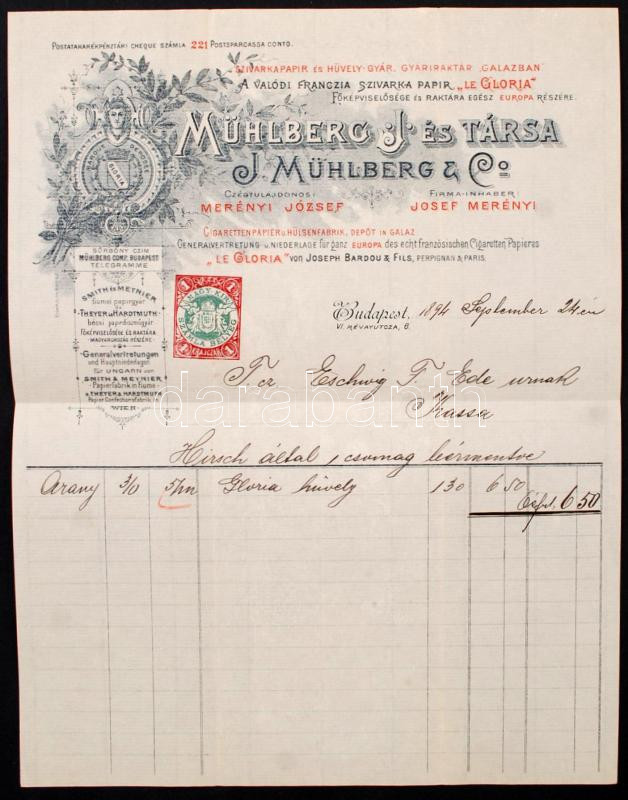 POSTATAKARÉKPÉNZTÁRI CHEQUE SZÁMLA 221 POSTSPARCASSA CONTO.
SZIVARKAPAPIR ÉS HÜVELY-GYÁR, GYÁRIRAKTÁR „GALAZBAN“
A VALÓDI FRANCZIA SZIVARKA PAPIR „LE GLORIA“
FŐKÉPVISELŐSÉGE ÉS RAKTÁRA EGÉSZ EUROPA RÉSZÉRE.
MÜHLBERG J. ÉS TÁRSA
J. MÜHLBERG & Co
CZÉGTULAJDONOS: FIRMA-INHABER:
MERÉNYI JÓZSEF JOSEF MERÉNYI
CIGARETTENPAPIER u HÜLSENFABRIK, DEPÔT IN GALAZ
GENERALVERTRETUNG u NIEDERLAGE für ganz EUROPA des echt französischen Cigaretten Papieres
„LE GLORIA“ von JOSEPH BARDOU & FILS, PERPIGNAN & PARIS.
GLORIA
SÜRGÖNY CZIM
MÜHLBERG COMP. BUDAPEST
TELEGRAMME
SMITH és MEYNIER
fiumei papirgyár
THEYER u HARDTMUTH
bécsi papirdiszmügyár
FŐKÉPVISELŐSÉGE ÉS RAKTÁRA
MAGYARORSZÁG RÉSZÉRE
Generalvertretungen
und Hauptniederlagen
für UNGARN von
SMITH & MEYNIER
Papierfabrik in Fiume
& THEYER & HARDTMUTH
Papier Confectionsfabrik in
WIEN
1 1
MAGY. KIR.
SZÁMLA BÉLYEG
1 KRAJCZÁR 1
Budapest, 1894 September 24én
VI. RÉVAYUTCZA, 6.
T. cz Eschwig T. Ede urnak
Kassa
Hirsch által 1 csomag bérmentve
Arany 3/0 5/m Gloria hüvely 130 6 50
6 50
darabanth